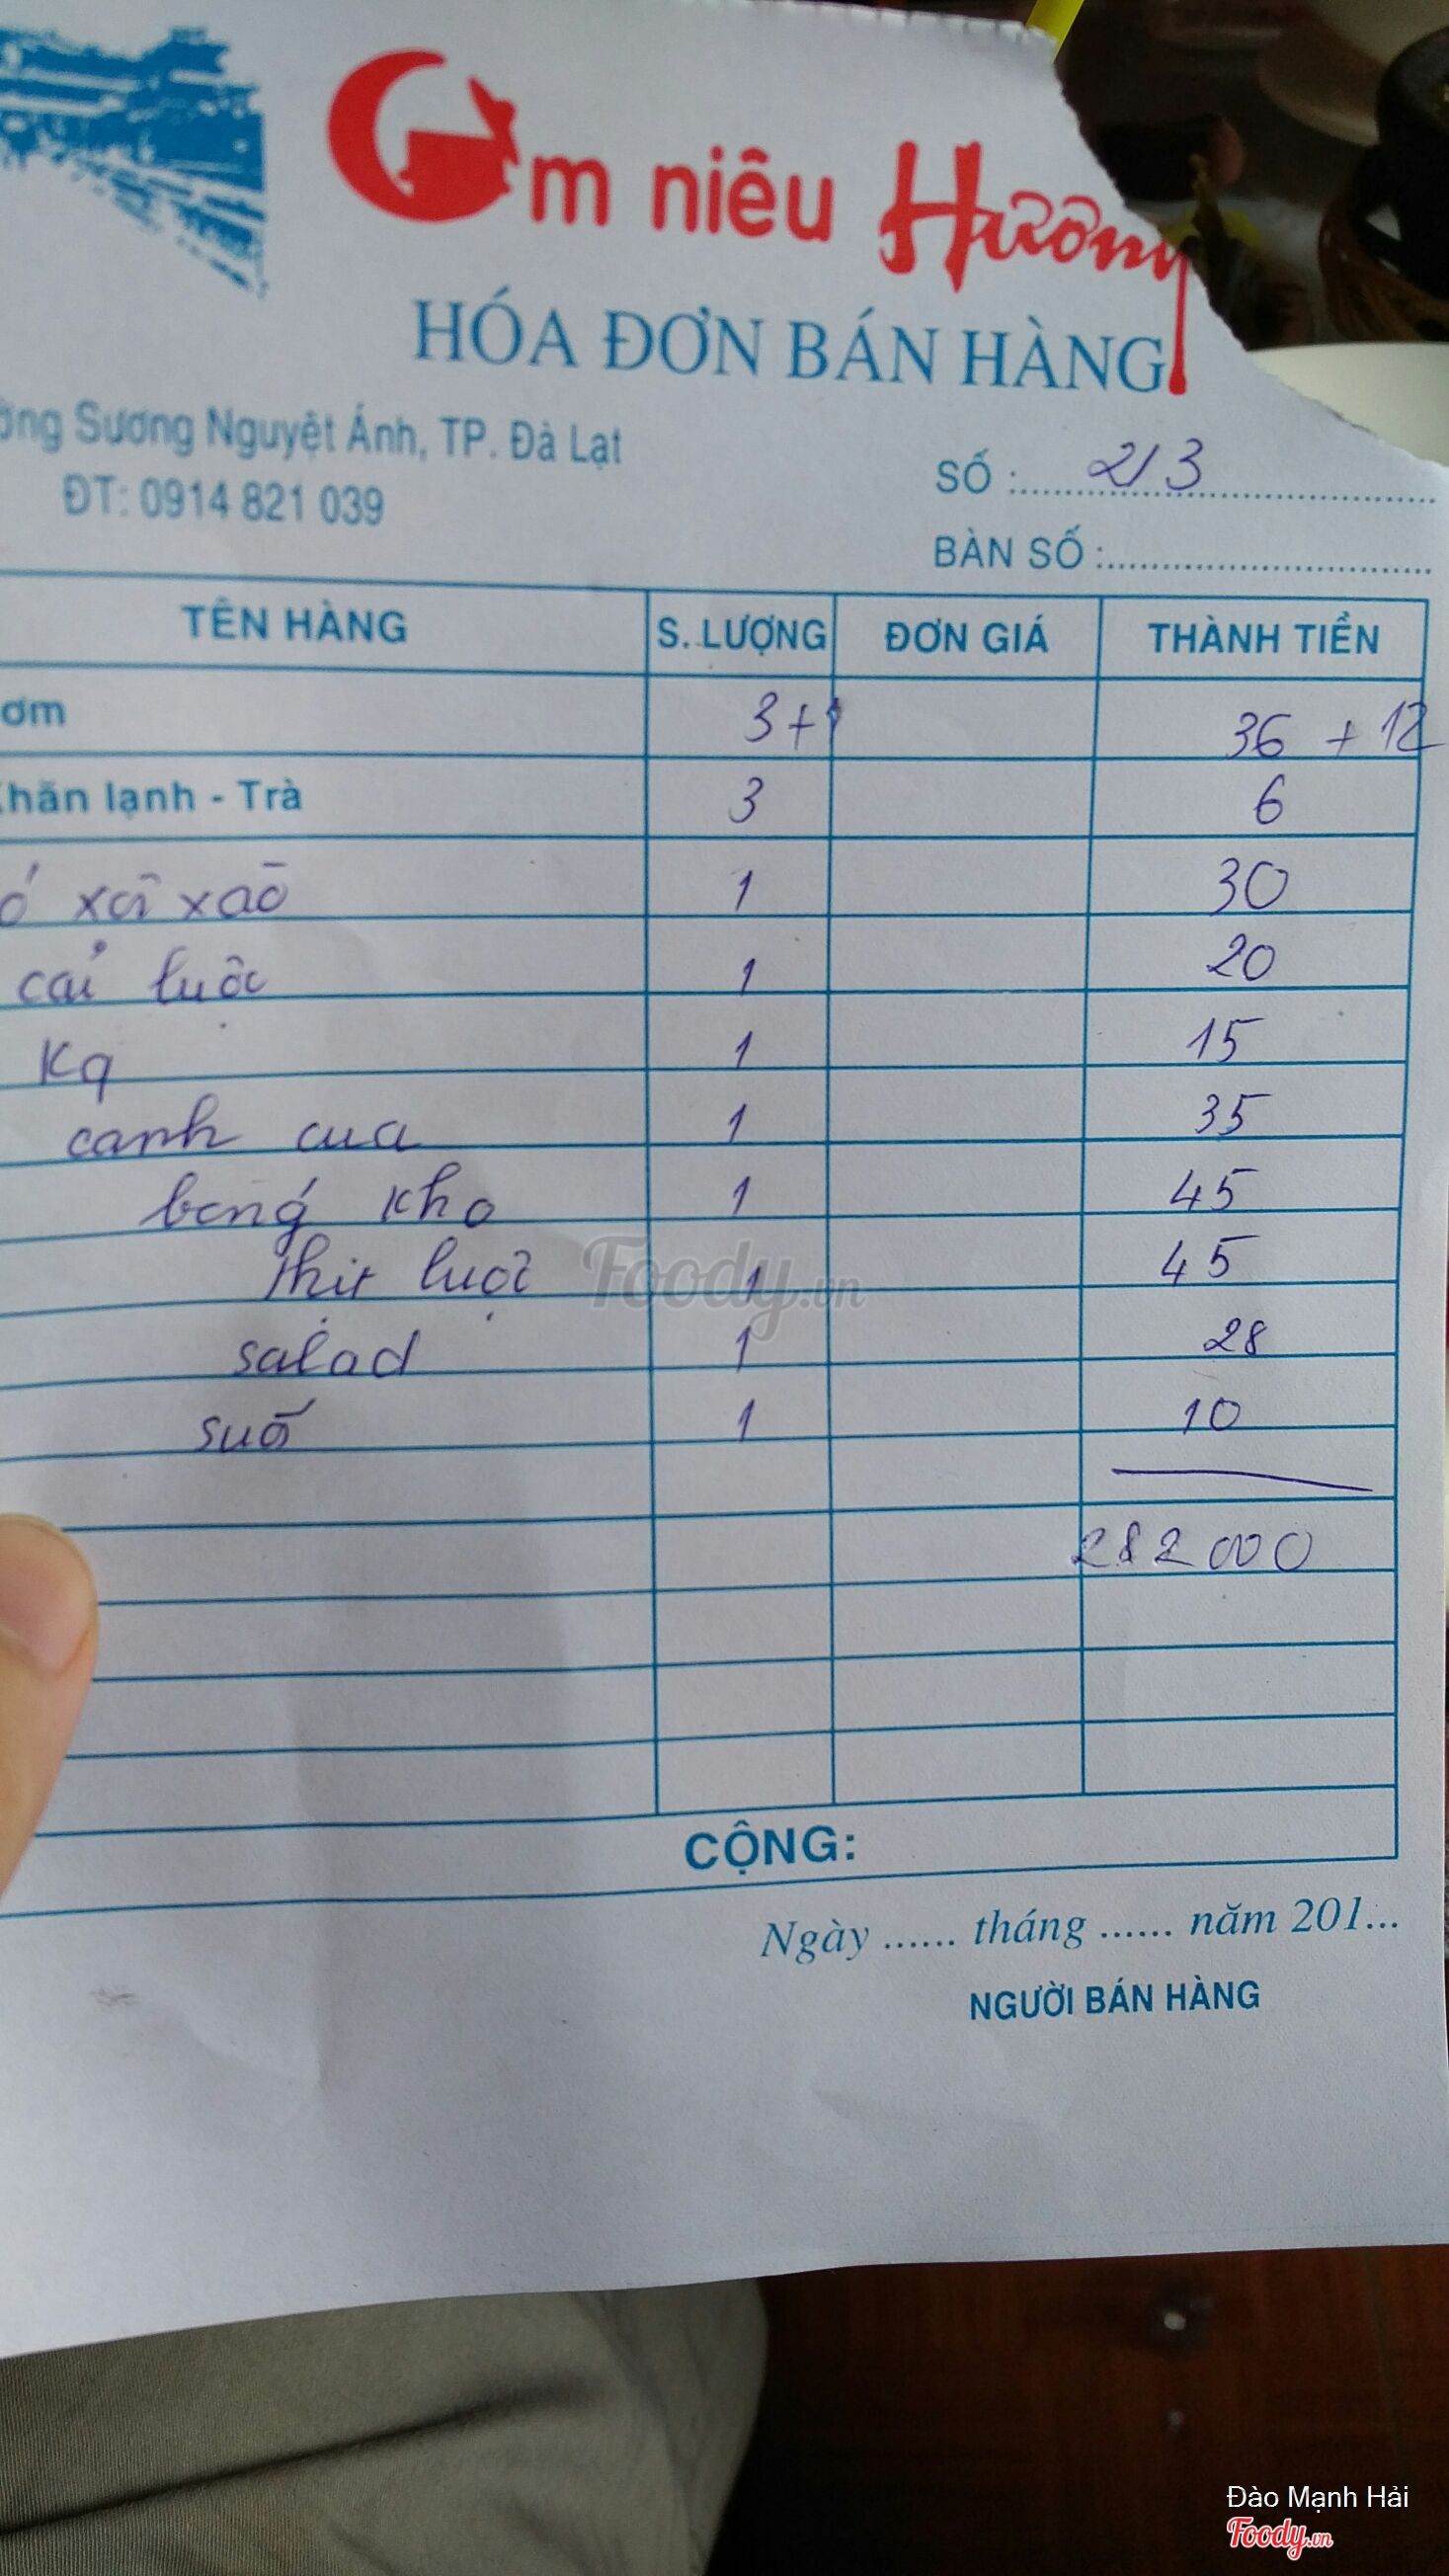 Cơm niêu Hương
HÓA ĐƠN BÁN HÀNG
ờng Sương Nguyệt Ánh, TP. Đà Lạt
ĐT: 0914 821 039
SỐ :........213........
BÀN SỐ :........
TÊN HÀNG S. LƯỢNG ĐƠN GIÁ THÀNH TIỀN
ơm 3+1 36 + 12
Khăn lạnh - Trà 3 6
ó xôi xào 1 30
cải luộc 1 20
Kq 1 15
canh cua 1 35
bống kho 1 45
thịt luộc 1 45
salad 1 28
suối 1 10
282 000
CỘNG:
Ngày ...... tháng ...... năm 201...
NGƯỜI BÁN HÀNG
Foody.vn
Đào Mạnh Hải
Foody.vn